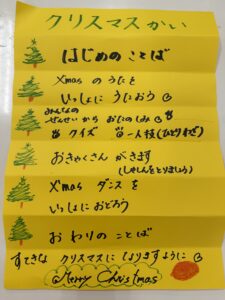 クリスマスかい
はじめの ことば
Xmas の うたを
いっしょに うたおう
みんなの
ぜんせい から おたのしみ
クイズ 一人技(ひとりわざ)
おきゃくさん がきます
(しゃしんをとりましょう)
X'mas ダンス を
いっしょに おどろう
おわりの ことば
すてきな クリスマスに なりますように
Merry Christmas